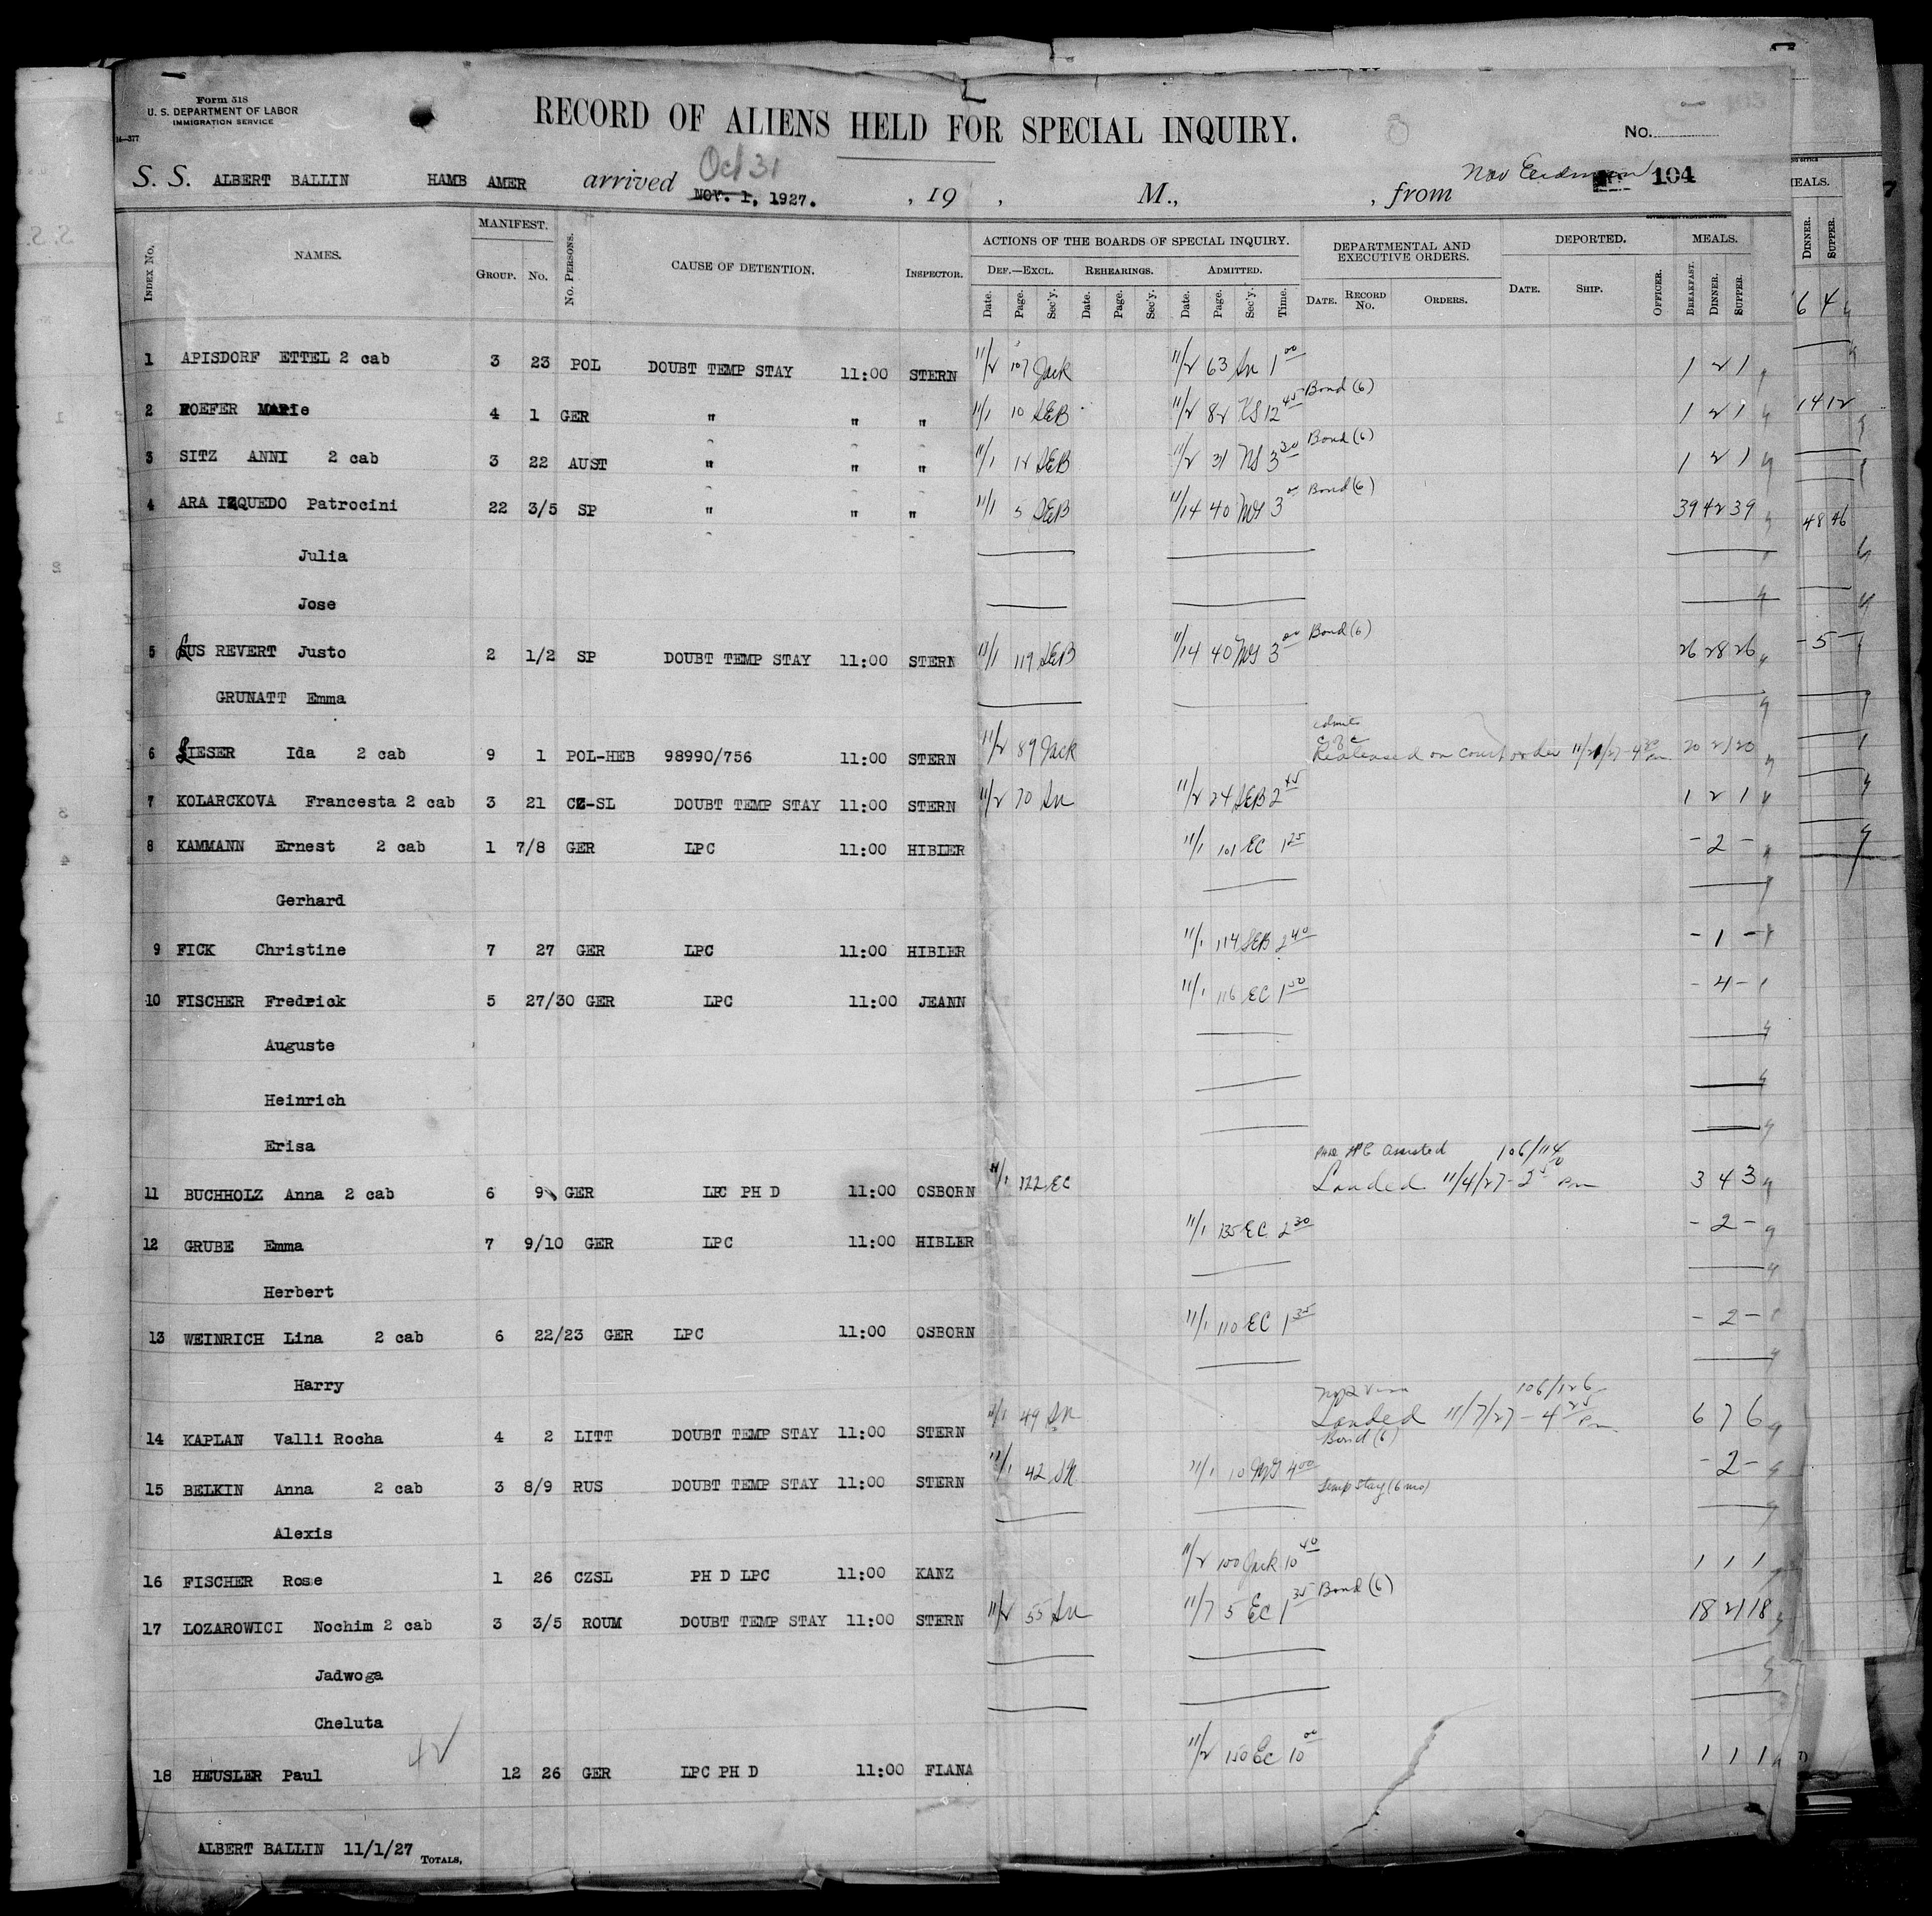 Form 518
U. S. DEPARTMENT OF LABOR
IMMIGRATION SERVICE
14—377
RECORD OF ALIENS HELD FOR SPECIAL INQUIRY.
No.
S. S. ALBERT BALLIN HAMB AMER arrived Oct 31 NOV. 1, 1927. , 19 , M., , from 104
INDEX No. NAMES. MANIFEST. GROUP. No. No. PERSONS. CAUSE OF DETENTION. INSPECTOR. ACTIONS OF THE BOARDS OF SPECIAL INQUIRY. DEPARTMENTAL AND EXECUTIVE ORDERS. DEPORTED. MEALS.
DEF.—EXCL. REHEARINGS. ADMITTED.
Date. Page. Sec'y. Date. Page. Sec'y. Date. Page. Sec'y. Time. DATE. RECORD No. ORDERS. DATE. SHIP. OFFICER. BREAKFAST. DINNER. SUPPER.
MEALS. DINNER. SUPPER.
6 4
1 APISDORF ETTEL 2 cab 3 23 POL DOUBT TEMP STAY 11:00 STERN 11/2 107 Jack 11/2 63 Sn 1 00 1 2 1
2 HOEFER MARIe 4 1 GER " " " 11/1 10 SEB 11/2 82 KS 12 45 Bond (6) 1 2 1 14 12
3 SITZ ANNI 2 cab 3 22 AUST " " " 11/1 12 SEB 11/2 31 NS 3 30 Bond (6) 1 2 1
4 ARA IZQUEDO Patrocini 22 3/5 SP " " " 11/1 5 SEB 11/14 40 MG 3 00 Bond (6) 39 42 39 48 46
Julia
Jose
5 LUS REVERT Justo 2 1/2 SP DOUBT TEMP STAY 11:00 STERN 11/1 119 SEB 11/14 40 MG 3 00 Bond (6) 26 28 26 - 5 -
GRUNATT Emma
6 LIESER Ida 2 cab 9 1 POL-HEB 98990/756 11:00 STERN 11/2 89 Jack Realeased on court order 11/21/27 - 4 30 pm 20 21 20
7 KOLARCKOVA Francesta 2 cab 3 21 CZ-SL DOUBT TEMP STAY 11:00 STERN 11/2 70 Sn 11/2 24 SEB 2 45 1 2 1
8 KAMMANN Ernest 2 cab 1 7/8 GER LPC 11:00 HIBLER 11/1 101 EC 1 25 - 2 -
Gerhard
9 FICK Christine 7 27 GER LPC 11:00 HIBLER 11/1 114 SEB 2 40 - 1 -
10 FISCHER Fredrick 5 27/30 GER LPC 11:00 JEANN 11/1 116 EC 1 50 - 4 -
Auguste
Heinrich
Erisa
11 BUCHHOLZ Anna 2 cab 6 9 GER LPC PH D 11:00 OSBORN 11/1 122 EC assisted 106/114 Landed 11/4/27 - 2 50 pm 3 4 3
12 GRUBE Emma 7 9/10 GER LPC 11:00 HIBLER 11/1 135 EC 2 30 - 2 -
Herbert
13 WEINRICH Lina 2 cab 6 22/23 GER LPC 11:00 OSBORN 11/1 110 EC 1 35 - 2 -
Harry
14 KAPLAN Valli Rocha 4 2 LITT DOUBT TEMP STAY 11:00 STERN 11/1 49 Sn 106/126 Landed 11/7/27 - 4 25 pm Bond (6) 6 7 6
15 BELKIN Anna 2 cab 3 8/9 RUS DOUBT TEMP STAY 11:00 STERN 11/1 42 Sn 11/1 10 MG 4 00 Temp stay (6 mo) - 2 -
Alexis
16 FISCHER Rose 1 26 CZSL PH D LPC 11:00 KANZ 11/2 100 Jack 10 40 1 1 1
17 LOZAROWICI Nochim 2 cab 3 3/5 ROUM DOUBT TEMP STAY 11:00 STERN 11/2 55 Sn 11/7 5 EC 1 35 Bond (6) 18 21 18
Jadwoga
Cheluta
42
18 HEUSLER Paul 12 26 GER LPC PH D 11:00 FIANA 11/2 150 EC 10 00 1 1 1
ALBERT BALLIN 11/1/27 TOTALS,